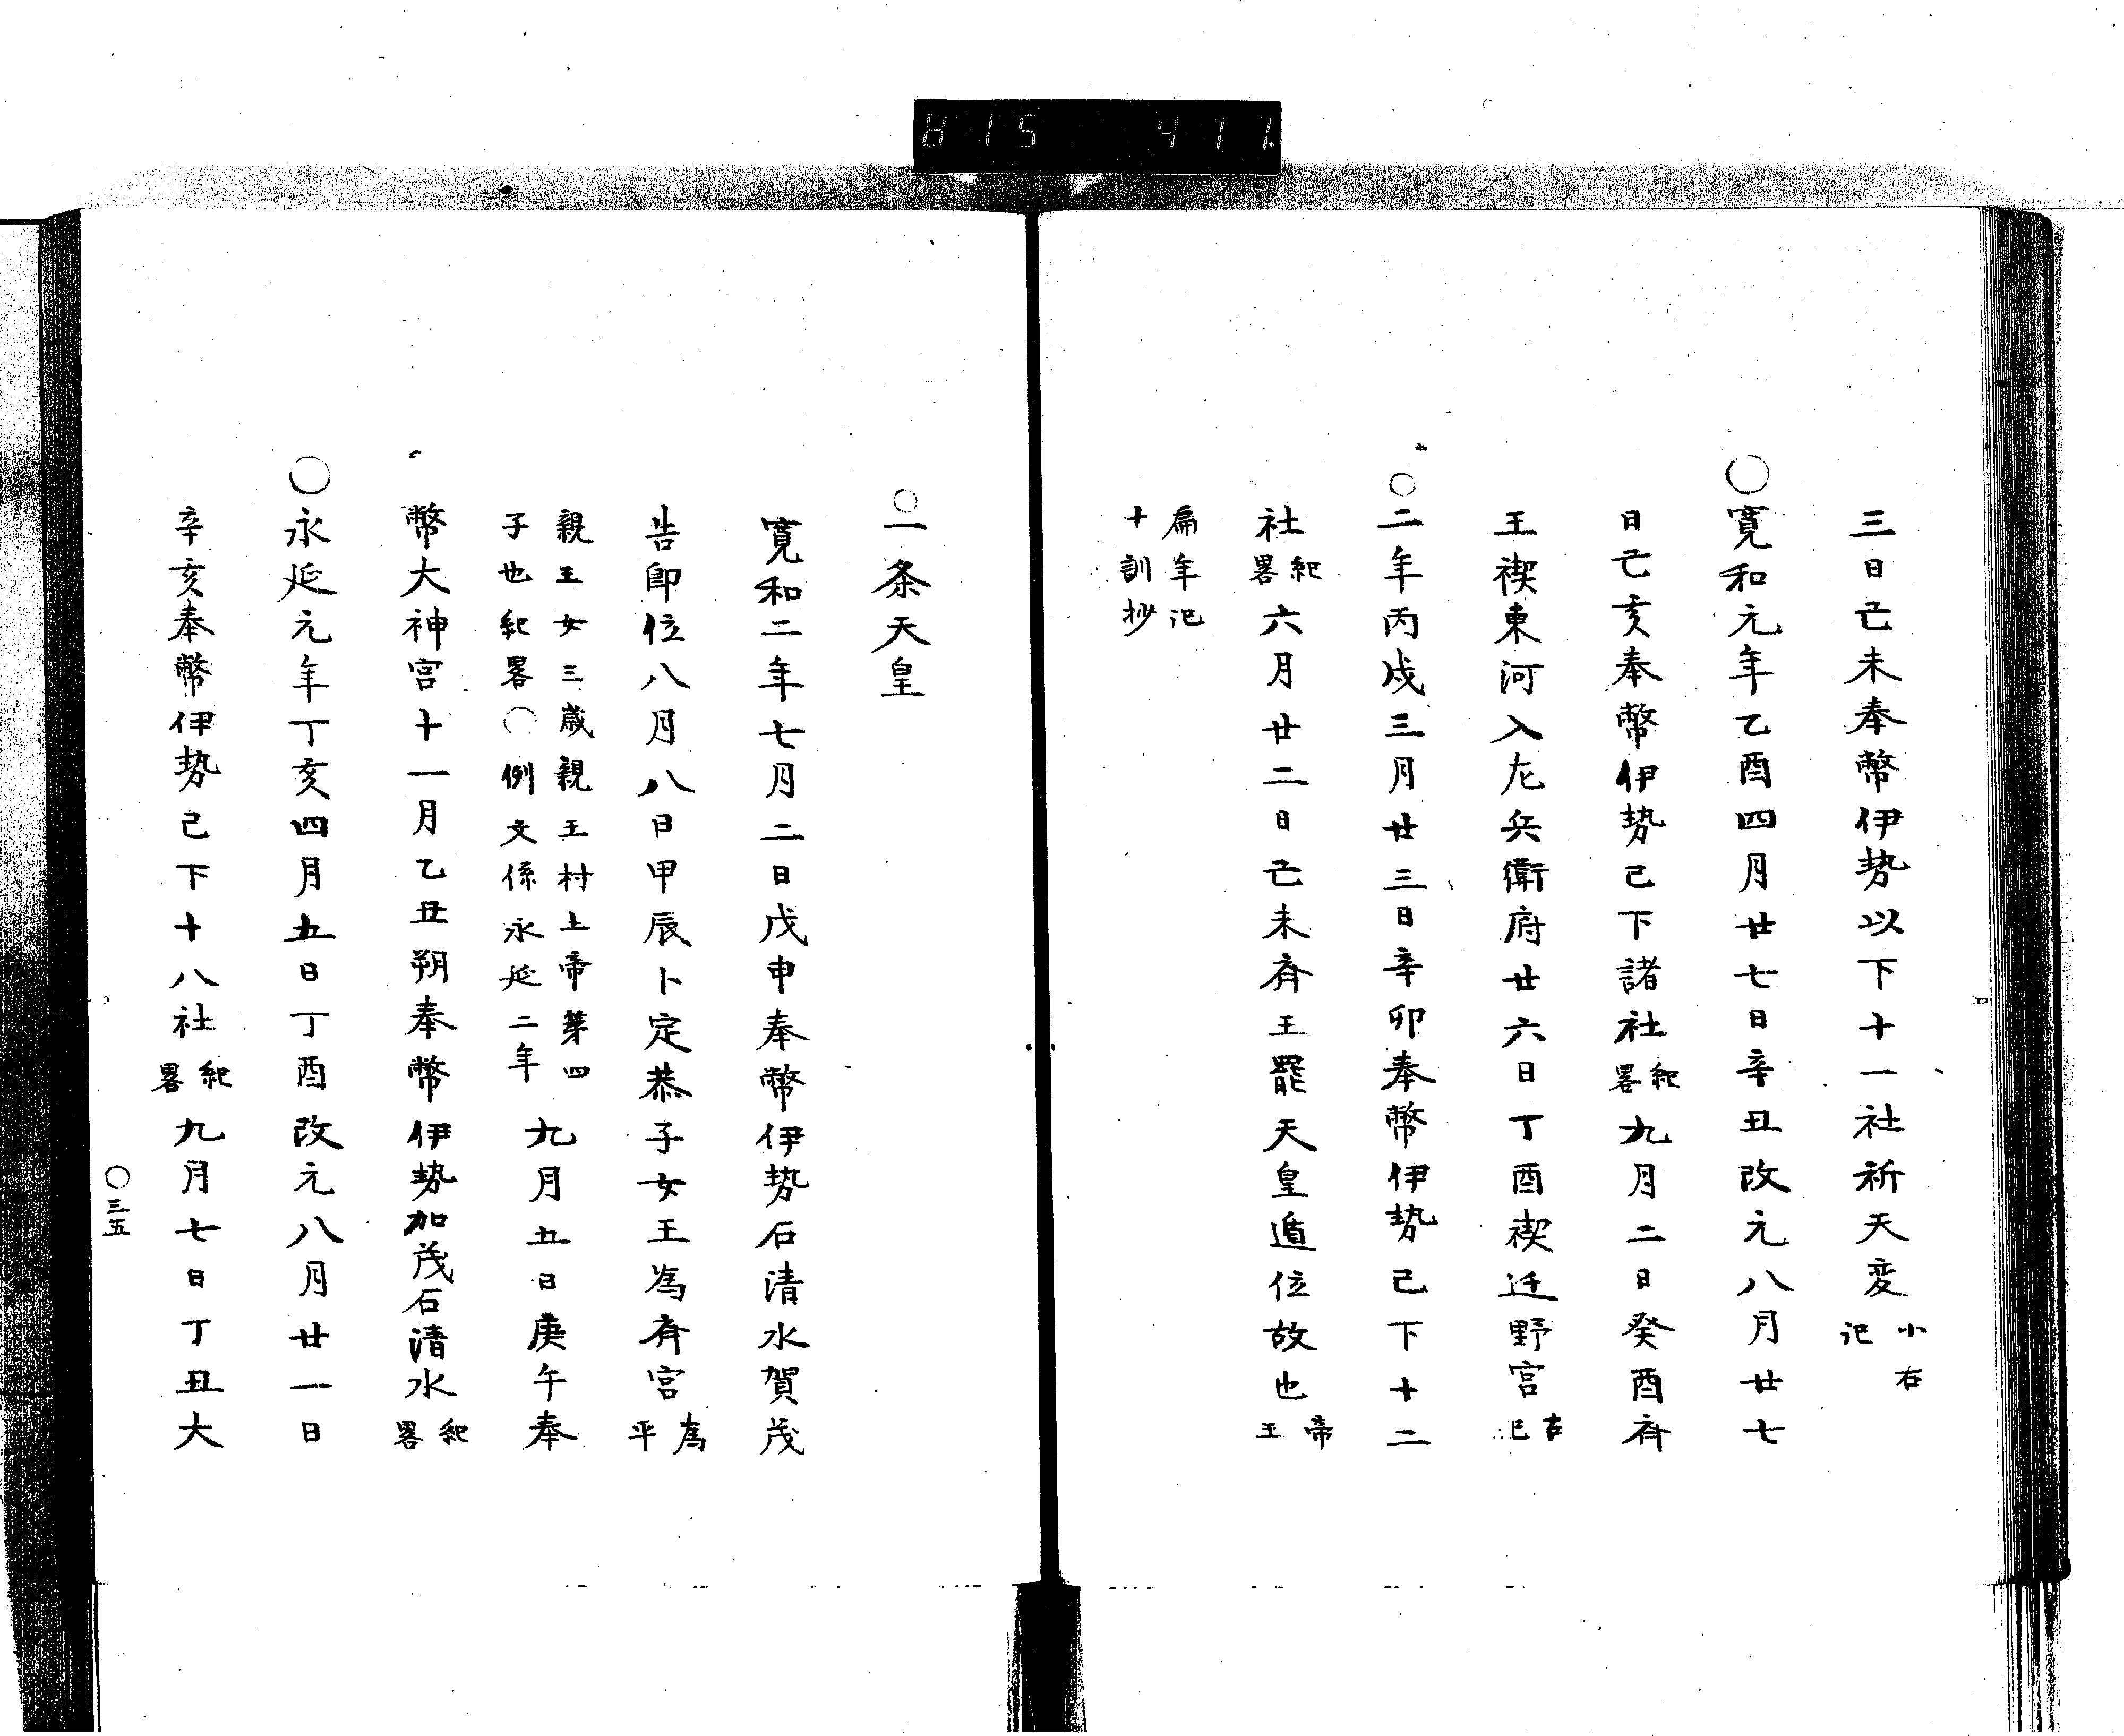 三日己未奉幣伊勢以下十一社祈天変小右記
○寛和元年乙酉四月廿七日辛丑改元八月廿七
日己亥奉幣伊勢已下諸社紀畧九月二日癸酉斉
王禊東河入左兵衛府廿六日丁酉禊迁野宮右記
○二年丙戌三月廿三日辛卯奉幣伊勢已下十二
社紀畧六月廿二日己未斉王罷天皇遁位故也帝王
扁年記
十訓抄
○一条天皇
寛和二年七月二日戊申奉幣伊勢石清水賀茂
告卽位八月八日甲辰卜定恭子女王為斉宮為平
親王女三歳親王村上帝第四
子也紀畧○例文係永延二年九月五日庚午奉
幣大神宮十一月乙丑朔奉幣伊勢加茂石清水紀畧
○永延元年丁亥四月五日丁酉改元八月廿一日
辛亥奉幣伊勢已下十八社紀畧九月七日丁丑大
○三五
815 411